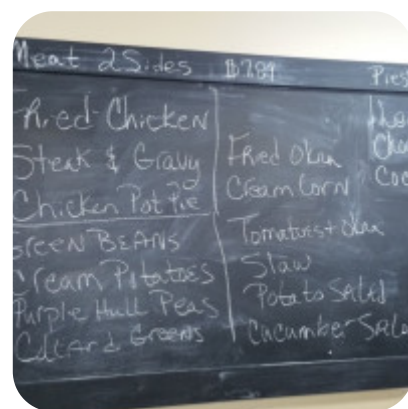 Meat 2 Sides $7.89 Pies
Fried Chicken
Steak & Gravy
Chicken Pot Pie
Green Beans
Cream Potatoes
Purple Hull Peas
Collard Greens
Fried Okra
Cream Corn
Tomatoes + Okra
Slaw
Potato Salad
Cucumber Sala
Cho
Coc